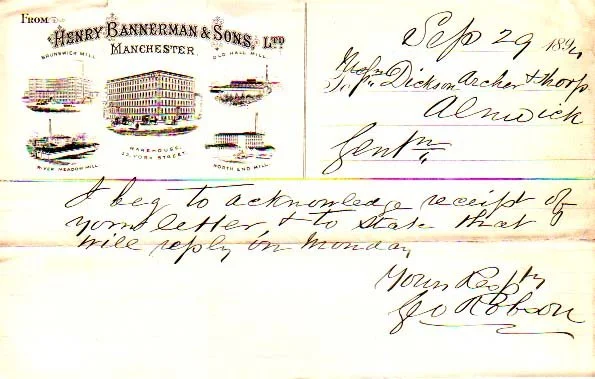 FROM
HENRY BANNERMAN & SONS, LTD
MANCHESTER.
BRUNSWICK MILL
OLD HALL MILL
WAREHOUSE
33 YORK STREET
RIVER MEADOW MILL
NORTH END MILL
Sep 29 1894
Messrs Dickson Archer & Thorp
Alnwick
Gentn
I beg to acknowledge receipt of
your letter & to state that
will reply on Monday
Yours Respty
Geo Robson